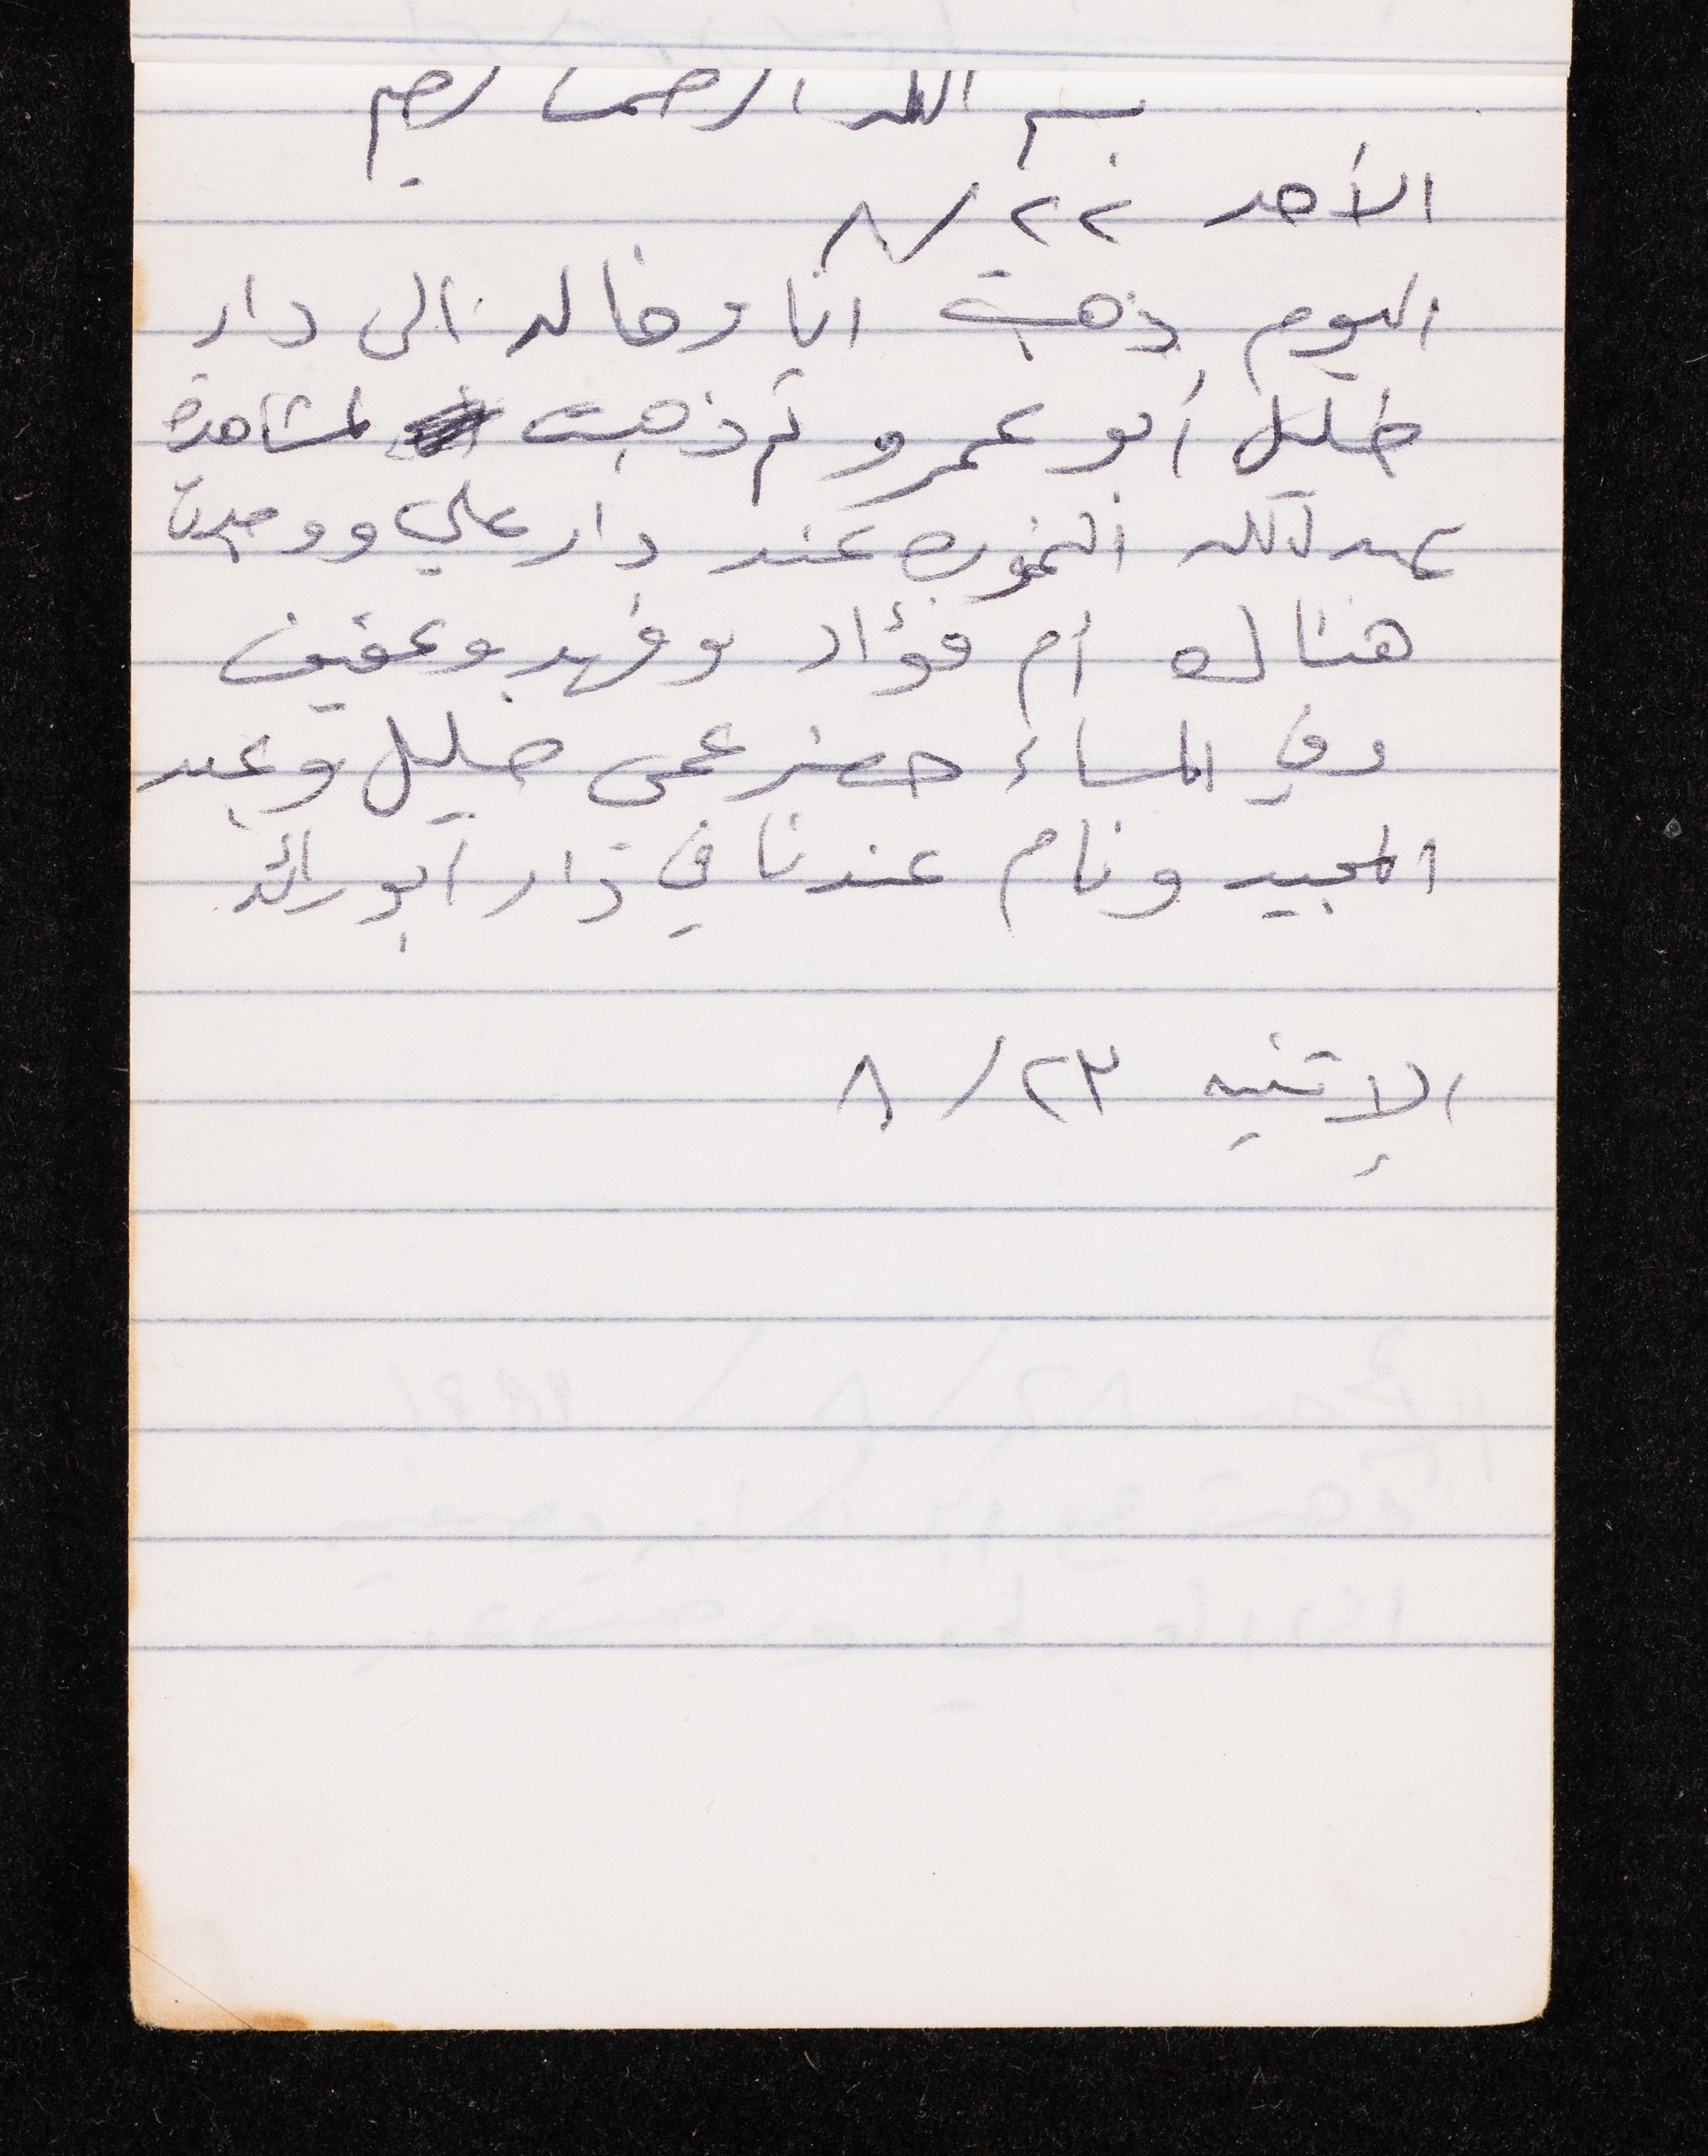 بسم الله الرحمن الرحيم
الأحد ٢٢ / ٨
اليوم ذهبت انا وخالد الى دار
خليل أبو عمرو ثم ذهبت لمشاهدة
عبدالله عند دار علي ووجدنا
هناك أم فؤاد وفهد وعفيف
وفي المساء حضر عمي خليل وعبد
المجيد ونام عندنا في دار ابو رائد
الإثنين ٢٣ / ٨